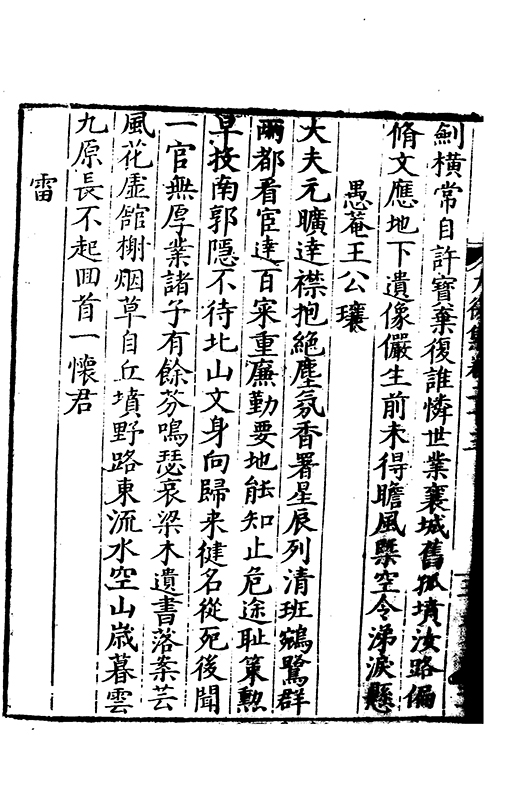 劍橫常自許寶棄復誰憐世業襄城舊孤墳汝路偏
脩文應地下遺像儼生前未得瞻風槩空令涕淚懸
愚菴王公瓖
大夫元曠達襟抱絕塵氛香署星辰列清班鵷鷺群
兩都看宦達百寀重廉勤要地能知止危途耻策勲
早投南郭隱不待北山文身向歸来健名從死後聞
一官無厚業諸子有餘芬鳴瑟哀梁木遺書落案芸
風花虛館榭烟草自丘墳野路東流水空山歲暮雲
九原長不起囬首一懷君
雷